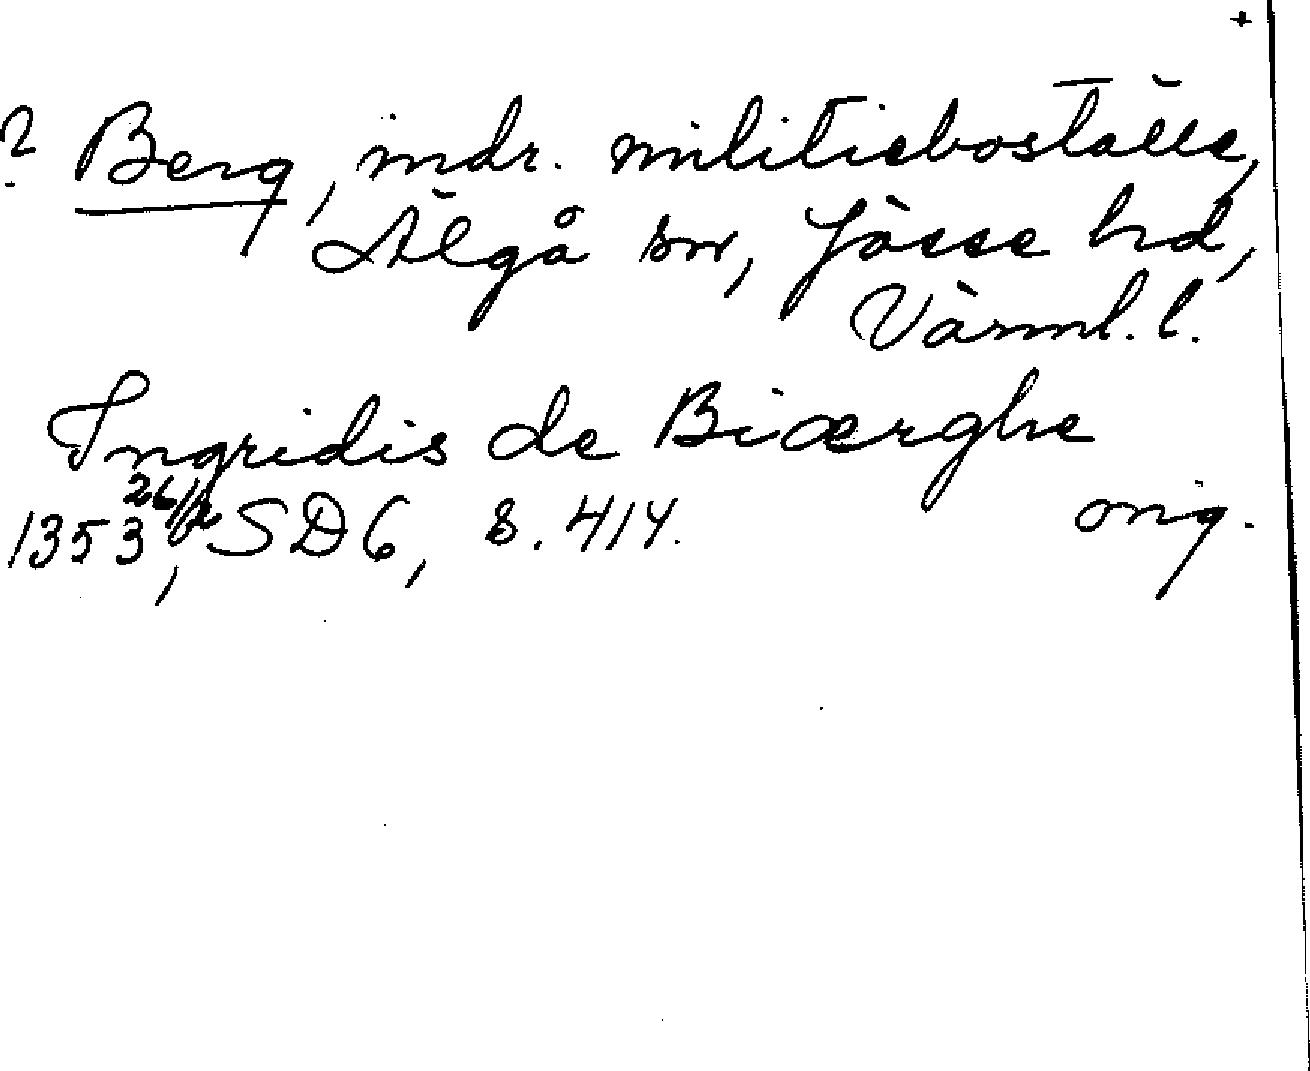 +
? Berg, indr. militieboställe,
Älgå sn, Jösse hd,
Värml. l.
Ingridis de Biærghe
1353 26/2, SD 6, s. 414. orig.